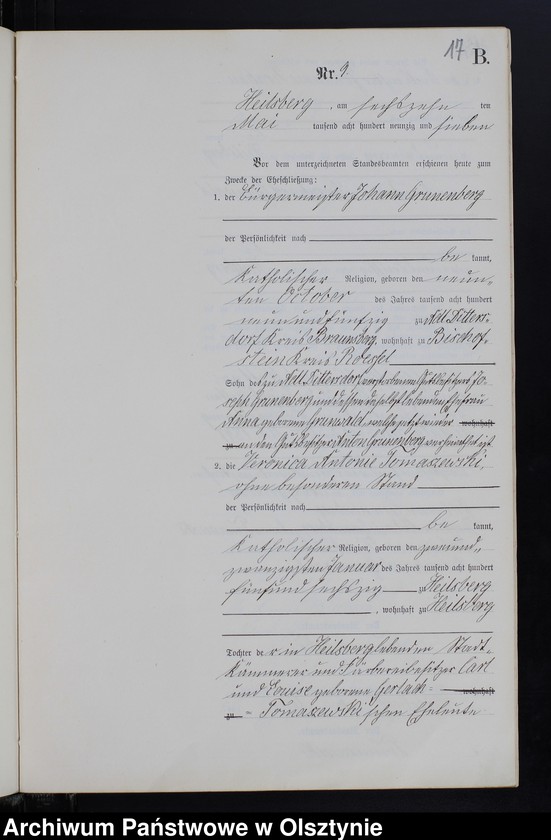 17 B.
Nr. 9.
Heilsberg, am sechszehn ten
Mai tausend acht hundert neunzig und sieben
Vor dem unterzeichneten Standesbeamten erschienen heute zum
Zwecke der Eheschließung:
1. der Bürgermeister Johann Grunenberg
der Persönlichkeit nach
be kannt,
katholischer Religion, geboren den neun-
ten October des Jahres tausend acht hundert
neun und fünfzig zu Adl. Bitters-
dorf Kreis Braunsberg, wohnhaft zu Bischof-
stein Kreis Roessel
Sohn des zu Adl. Bittersdorf verstorbenen Gutsbesitzers Jo-
seph Grunenberg und dessen daselbst lebenden Ehefrau
Anna geborene Grunwald, welche jetzt wieder wohnhaft
zu an den Gutsbesitzer Anton Grunenberg verheirathet ist
2. die Veronica Antonie Tomaszewski,
ohne besonderen Stand
der Persönlichkeit nach
be kannt,
katholischer Religion, geboren den zweiund-
zwanzigsten Januar des Jahres tausend acht hundert
fünf und sechszig zu Heilsberg
, wohnhaft zu Heilsberg
Tochter der in Heilsberg lebenden Stadt-
kämmerer und Färbereibesitzer Carl
und Louise geborene Gerlach- wohnhaft
zu - Tomaszewski'schen Eheleute
Archiwum Państwowe w Olsztynie